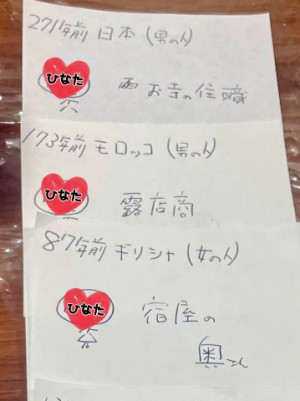 271年前 日本 (男の人)
ひなた
お寺の住職
173年前 モロッコ (男の人)
ひなた
露店商
87年前 ギリシャ (女の人)
ひなた
宿屋の
奥さん